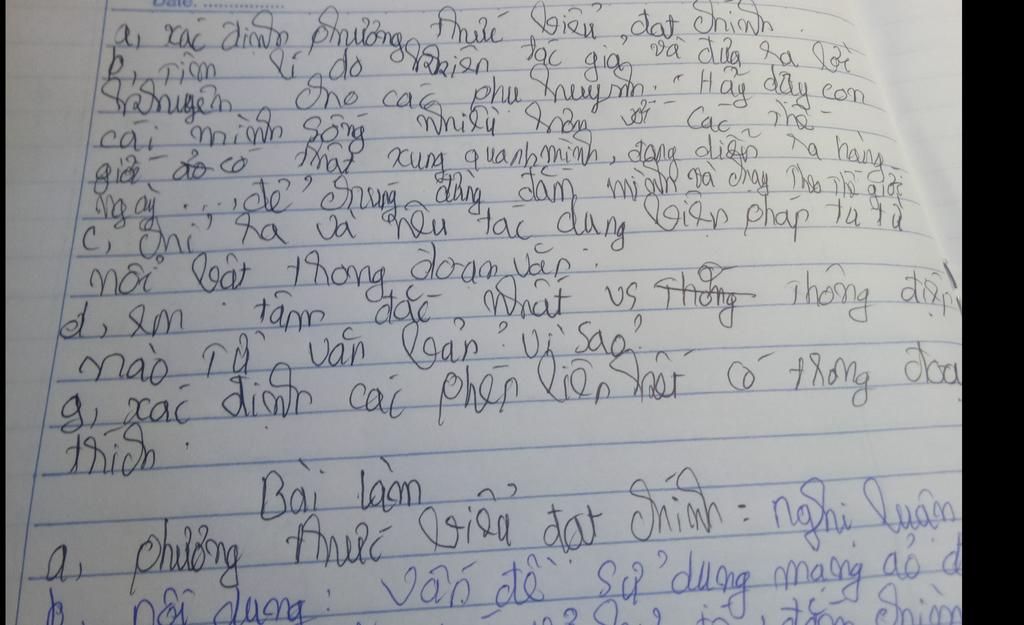 Date: ..................
a, xác định phương thức biểu đạt chính.
b, Tìm lí do khiến tác giả và đưa ra lời
khuyên cho các phụ huynh: "Hãy dạy con
cái mình sống nhiều hơn với các thế
giới có thật xung quanh mình, đang diễn ra hàng
ngày ..., để chúng đừng đắm mình và chạy theo thế giới
c, chỉ ra và nêu tác dụng biện pháp tu từ
nổi bật trong đoạn văn.
d, em tâm đắc nhất vs thông điệp
nào Từ văn bản? Vì sao?
g, xác định các phép liên kết có trong đoạ
trích.
Bài làm
a, phương thức biểu đạt chính: nghị luận
b, nội dung: vấn đề sử dụng mạng ảo